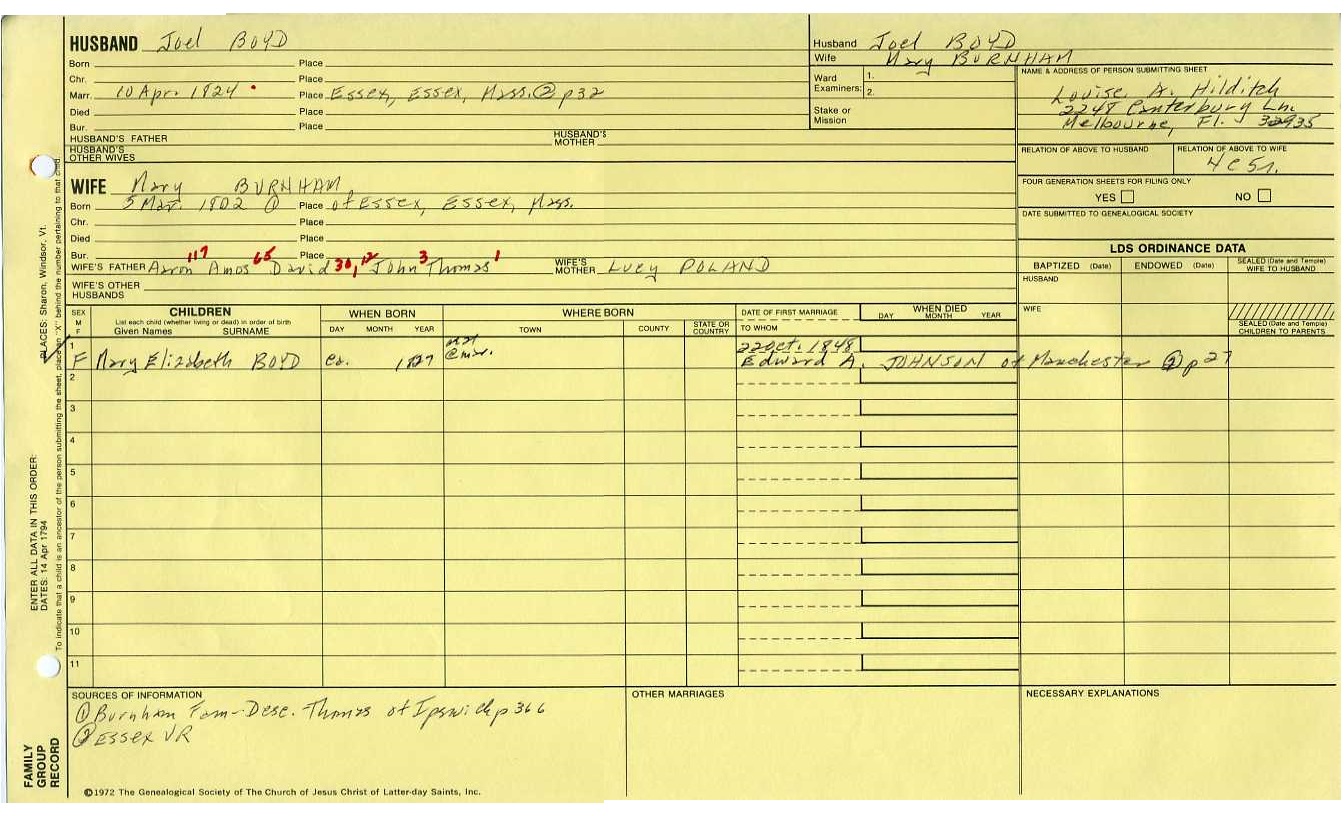 HUSBAND Joel BOYD
Born Place
Chr. Place
Marr. 10 Apr. 1824 Place Essex, Essex, Mass. ② p32
Died Place
Bur. Place
HUSBAND'S FATHER HUSBAND'S MOTHER
HUSBAND'S OTHER WIVES
Husband Joel BOYD
Wife Mary BURNHAM
Ward Examiners: 1.
2.
Stake or Mission
NAME & ADDRESS OF PERSON SUBMITTING SHEET
Louise A. Hilditch
2248 Canterbury Ln.
Melbourne, Fl. 32935
RELATION OF ABOVE TO HUSBAND RELATION OF ABOVE TO WIFE
4c5r.
FOUR GENERATION SHEETS FOR FILING ONLY
YES NO
DATE SUBMITTED TO GENEALOGICAL SOCIETY
WIFE Mary BURNHAM
Born 5 Mar. 1802 ① Place of Essex, Essex, Mass.
Chr. Place
Died Place
Bur. Place
117 65 30, 12 3 1
WIFE'S FATHER Aaron Amos David John Thomas WIFE'S MOTHER Lucy POLAND
WIFE'S OTHER HUSBANDS
LDS ORDINANCE DATA
BAPTIZED (Date) ENDOWED (Date) SEALED (Date and Temple) WIFE TO HUSBAND
HUSBAND
WIFE
SEALED (Date and Temple) CHILDREN TO PARENTS
SEX M F CHILDREN WHEN BORN WHERE BORN DATE OF FIRST MARRIAGE WHEN DIED
List each child (whether living or dead) in order of birth
Given Names SURNAME DAY MONTH YEAR TOWN COUNTY STATE OR COUNTRY TO WHOM DAY MONTH YEAR
1 22 Oct. 1848
F Mary Elizabeth BOYD ca. 1827 @mar. Edward A. JOHNSON of Manchester ② p27
2
3
4
5
6
7
8
9
10
11
SOURCES OF INFORMATION
① Burnham Fam-Desc. Thomas of Ipswich p366
② Essex VR
OTHER MARRIAGES
NECESSARY EXPLANATIONS
©1972 The Genealogical Society of The Church of Jesus Christ of Latter-day Saints, Inc.
FAMILY GROUP RECORD
ENTER ALL DATA IN THIS ORDER:
DATES: 14 Apr 1794
PLACES: Sharon, Windsor, Vt.
To indicate that a child is an ancestor of the person submitting the sheet, place an "X" behind the number pertaining to that child.